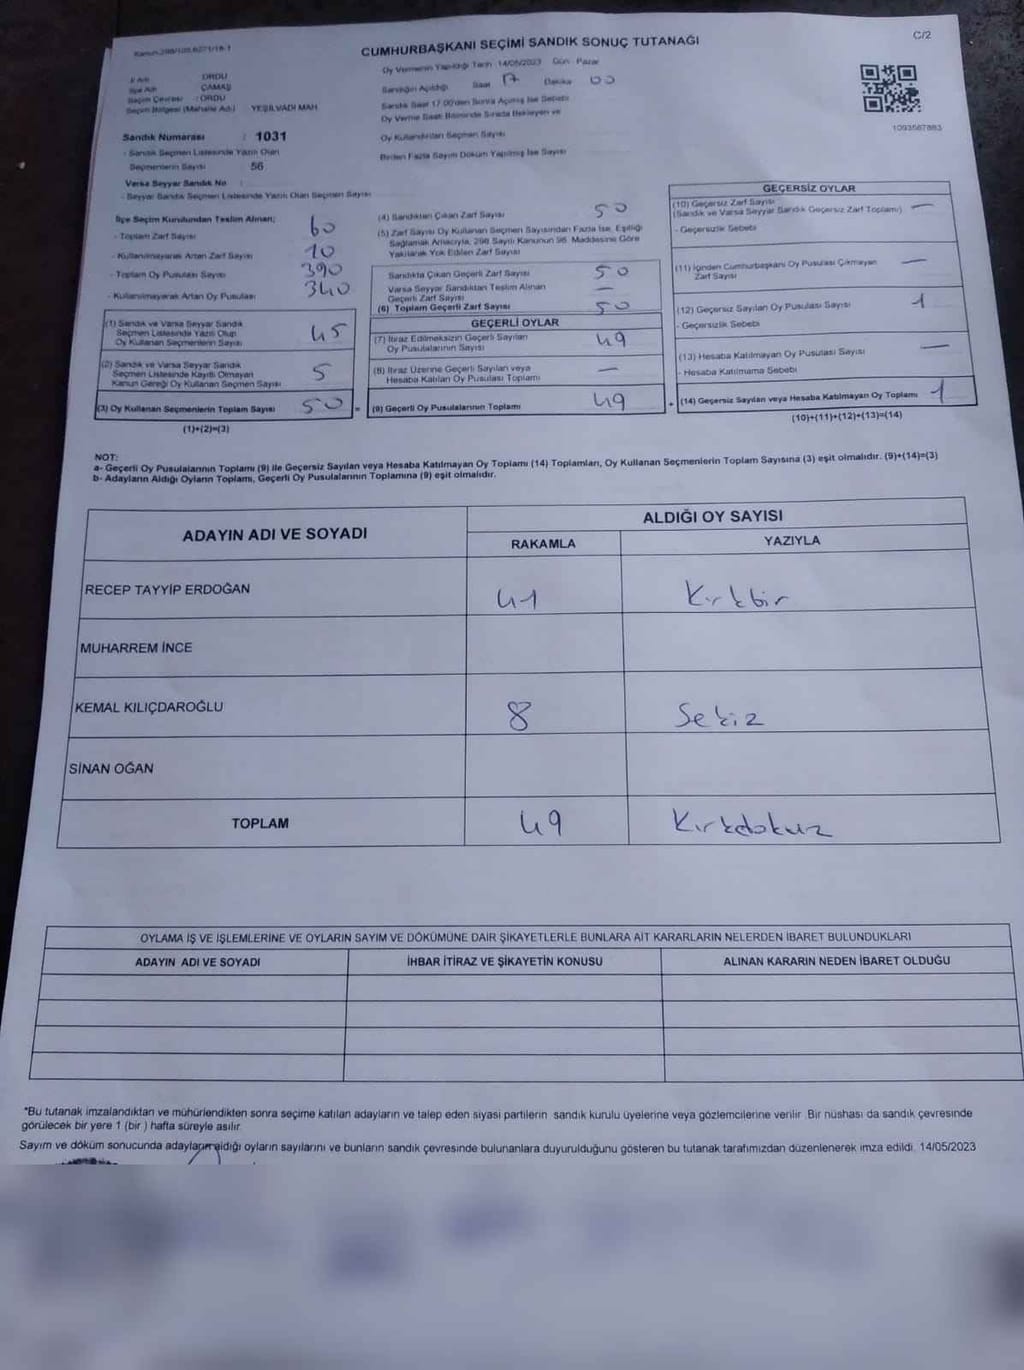 Kanun:298/105,6271/18-1
CUMHURBAŞKANI SEÇİMİ SANDIK SONUÇ TUTANAĞI
C/2
İl Adı : ORDU
İlçe Adı : ÇAMAŞ
Seçim Çevresi : ORDU
Seçim Bölgesi (Mahalle Adı) : YEŞİLVADİ MAH
Sandık Numarası : 1031
- Sandık Seçmen Listesinde Yazılı Olan
Seçmenlerin Sayısı : 56
Varsa Seyyar Sandık No :
- Seyyar Sandık Seçmen Listesinde Yazılı Olan Seçmen Sayısı
Oy Vermenin Yapıldığı Tarih 14/05/2023 Gün Pazar
Sandığın Açıldığı Saat 17 Dakika 00
Sandık Saat 17.00'den Sonra Açılmış İse Sebebi
Oy Verme Saati Bitiminde Sırada Bekleyen ve
Oy Kullandırılan Seçmen Sayısı
Birden Fazla Sayım Döküm Yapılmış İse Sayısı
1093567883
İlçe Seçim Kurulundan Teslim Alınan;
- Toplam Zarf Sayısı 60
- Kullanılmayarak Artan Zarf Sayısı 10
- Toplam Oy Pusulası Sayısı 390
- Kullanılmayarak Artan Oy Pusulası 340
(1) Sandık ve Varsa Seyyar Sandık
Seçmen Listesinde Yazılı Olup
Oy Kullanan Seçmenlerin Sayısı 45
(2) Sandık ve Varsa Seyyar Sandık
Seçmen Listesinde Kayıtlı Olmayan
Kanun Gereği Oy Kullanan Seçmen Sayısı 5
(3) Oy Kullanan Seçmenlerin Toplam Sayısı 50 =
(1)+(2)=(3)
(4) Sandıktan Çıkan Zarf Sayısı 50
(5) Zarf Sayısı Oy Kullanan Seçmen Sayısından Fazla İse, Eşitliği
Sağlamak Amacıyla, 298 Sayılı Kanunun 98. Maddesine Göre
Yakılarak Yok Edilen Zarf Sayısı —
Sandıkta Çıkan Geçerli Zarf Sayısı 50
Varsa Seyyar Sandıktan Teslim Alınan
Geçerli Zarf Sayısı —
(6) Toplam Geçerli Zarf Sayısı 50
GEÇERLİ OYLAR
(7) İtiraz Edilmeksizin Geçerli Sayılan
Oy Pusulalarının Sayısı 49
(8) İtiraz Üzerine Geçerli Sayılan veya
Hesaba Katılan Oy Pusulası Toplamı —
(9) Geçerli Oy Pusulalarının Toplamı 49 +
GEÇERSİZ OYLAR
(10) Geçersiz Zarf Sayısı
(Sandık ve Varsa Seyyar Sandık Geçersiz Zarf Toplamı) —
- Geçersizlik Sebebi
(11) İçinden Cumhurbaşkanı Oy Pusulası Çıkmayan
Zarf Sayısı —
(12) Geçersiz Sayılan Oy Pusulası Sayısı 1
- Geçersizlik Sebebi
(13) Hesaba Katılmayan Oy Pusulası Sayısı —
- Hesaba Katılmama Sebebi
(14) Geçersiz Sayılan veya Hesaba Katılmayan Oy Toplamı 1
(10)+(11)+(12)+(13)=(14)
NOT:
a- Geçerli Oy Pusulalarının Toplamı (9) ile Geçersiz Sayılan veya Hesaba Katılmayan Oy Toplamı (14) Toplamları, Oy Kullanan Seçmenlerin Toplam Sayısına (3) eşit olmalıdır. (9)+(14)=(3)
b- Adayların Aldığı Oyların Toplamı, Geçerli Oy Pusulalarının Toplamına (9) eşit olmalıdır.
ADAYIN ADI VE SOYADI
ALDIĞI OY SAYISI
RAKAMLA YAZIYLA
RECEP TAYYİP ERDOĞAN 41 Kırkbir
MUHARREM İNCE
KEMAL KILIÇDAROĞLU 8 Sekiz
SİNAN OĞAN
TOPLAM 49 Kırkdokuz
OYLAMA İŞ VE İŞLEMLERİNE VE OYLARIN SAYIM VE DÖKÜMÜNE DAİR ŞİKAYETLERLE BUNLARA AİT KARARLARIN NELERDEN İBARET BULUNDUKLARI
ADAYIN ADI VE SOYADI İHBAR İTİRAZ VE ŞİKAYETİN KONUSU ALINAN KARARIN NEDEN İBARET OLDUĞU
*Bu tutanak imzalandıktan ve mühürlendikten sonra seçime katılan adayların ve talep eden siyasi partilerin sandık kurulu üyelerine veya gözlemcilerine verilir. Bir nüshası da sandık çevresinde
görülecek bir yere 1 (bir ) hafta süreyle asılır.
Sayım ve döküm sonucunda adayların aldığı oyların sayılarını ve bunların sandık çevresinde bulunanlara duyurulduğunu gösteren bu tutanak tarafımızdan düzenlenerek imza edildi. 14/05/2023